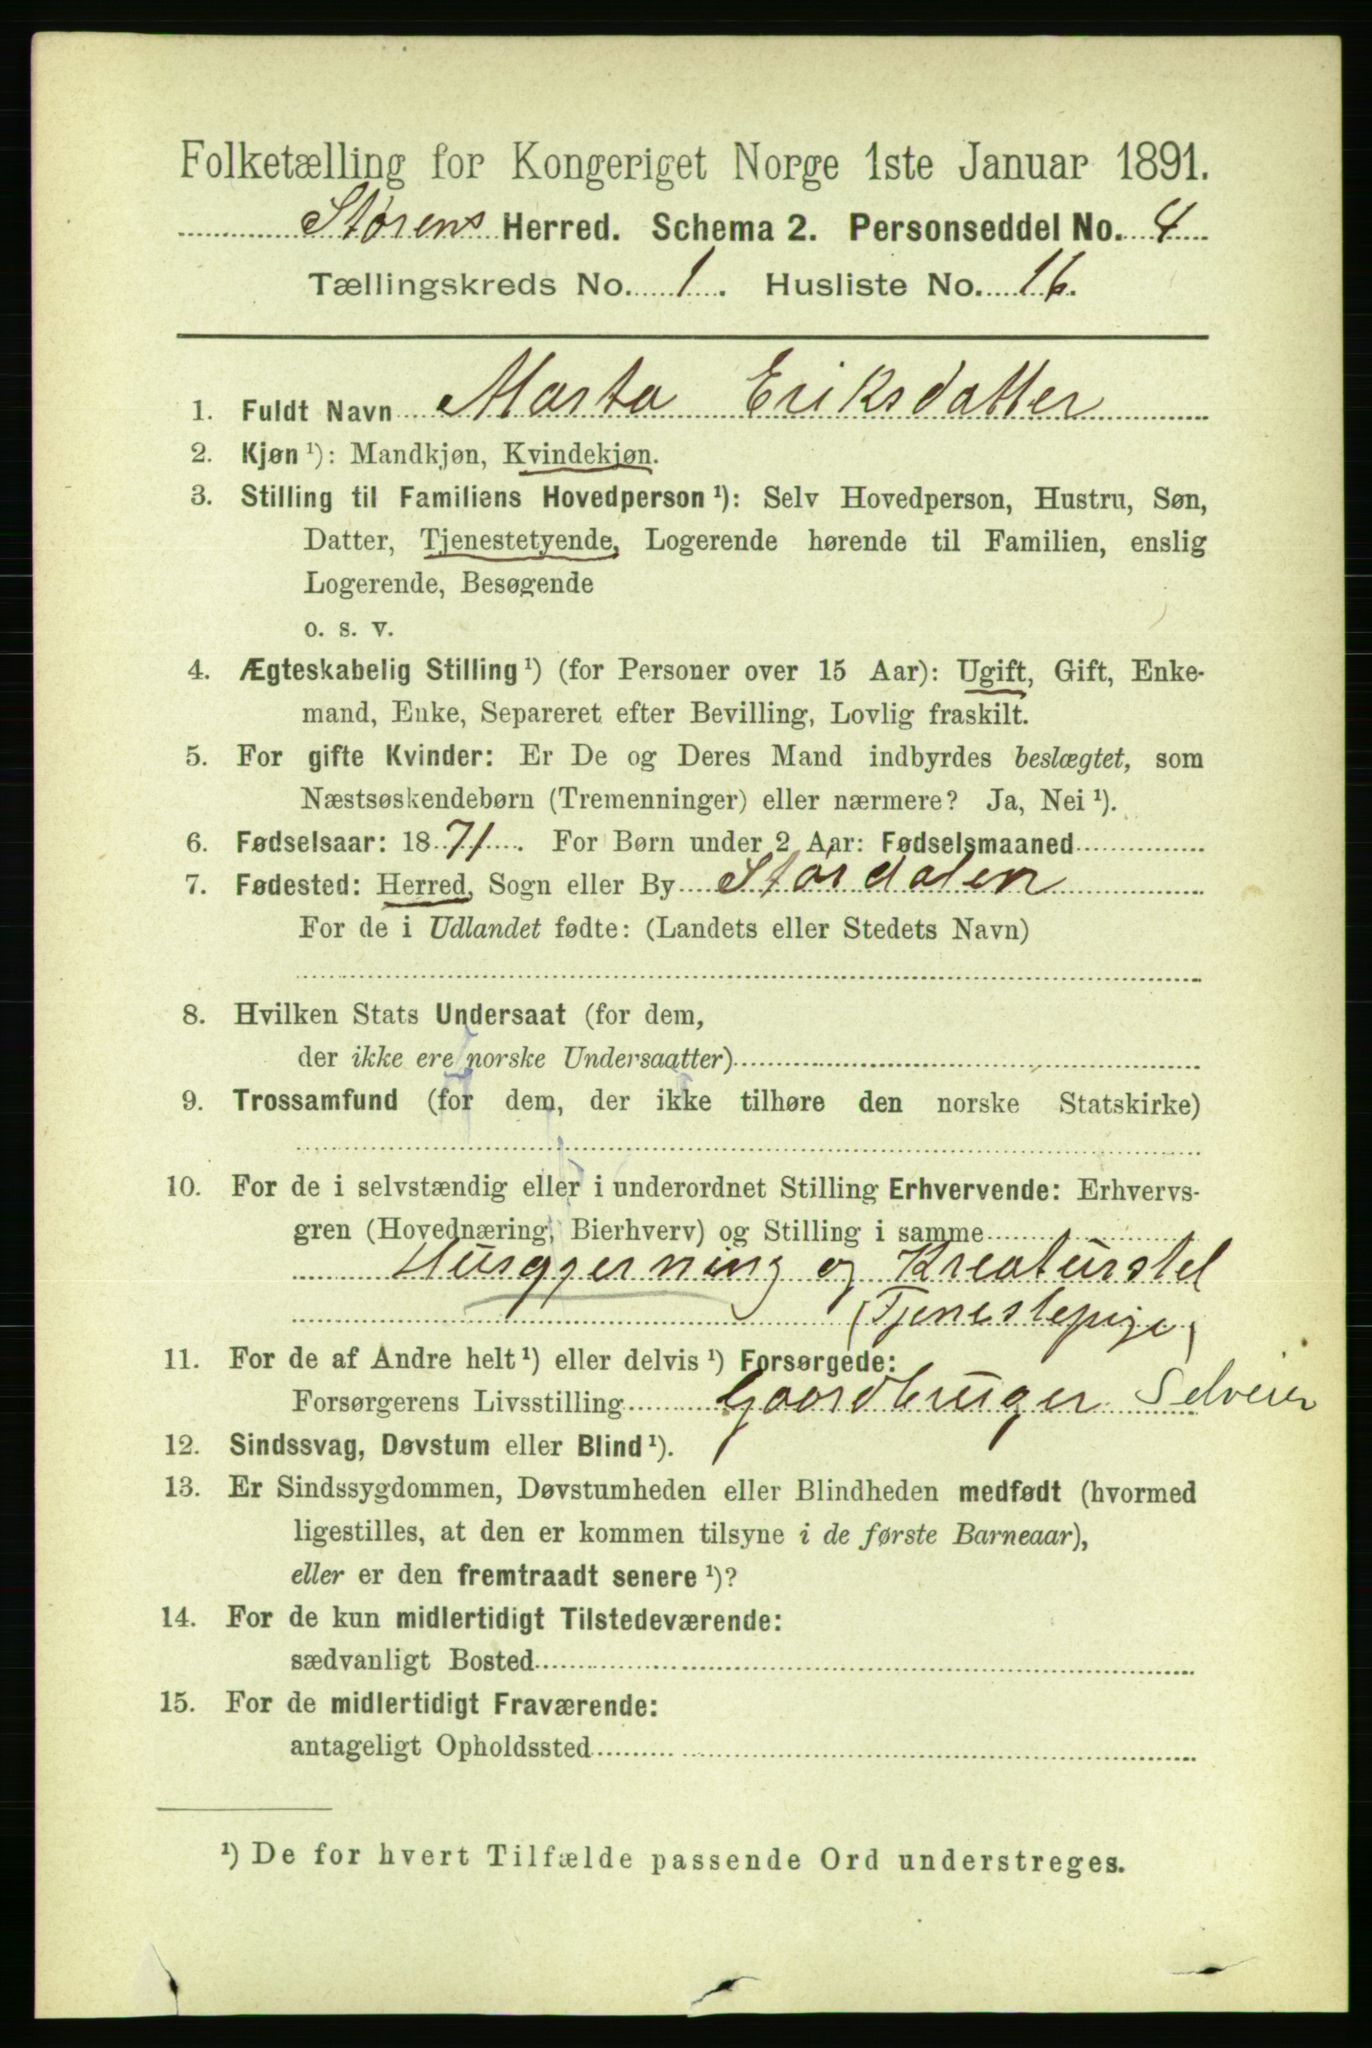 Folketælling for Kongeriget Norge 1ste Januar 1891.
Størens Herred. Schema 2. Personseddel No. 4
Tællingskreds No. 1. Husliste No. 16.
1. Fuldt Navn Marta Eriksdatter
2. Kjøn ¹): Mandkjøn, Kvindekjøn.
3. Stilling til Familiens Hovedperson ¹): Selv Hovedperson, Hustru, Søn,
Datter, Tjenestetyende, Logerende hørende til Familien, enslig
Logerende, Besøgende
o. s. v.
4. Ægteskabelig Stilling ¹) (for Personer over 15 Aar): Ugift, Gift, Enke-
mand, Enke, Separeret efter Bevilling, Lovlig fraskilt.
5. For gifte Kvinder: Er De og Deres Mand indbyrdes beslægtet, som
Næstsøskendebørn (Tremenninger) eller nærmere? Ja, Nei ¹).
6. Fødselsaar: 1871. For Børn under 2 Aar: Fødselsmaaned
7. Fødested: Herred, Sogn eller By Størdalen
For de i Udlandet fødte: (Landets eller Stedets Navn)
8. Hvilken Stats Undersaat (for dem,
der ikke ere norske Undersaatter)
9. Trossamfund (for dem, der ikke tilhøre den norske Statskirke)
10. For de i selvstændig eller i underordnet Stilling Erhvervende: Erhvervs-
gren (Hovednæring, Bierhverv) og Stilling i samme
Husgjerning og Kreaturstel
(Tjenestepige)
11. For de af Andre helt ¹) eller delvis ¹) Forsørgede:
Forsørgerens Livsstilling Gaardbruger Selveier
12. Sindssvag, Døvstum eller Blind ¹).
13. Er Sindssygdommen, Døvstumheden eller Blindheden medfødt (hvormed
ligestilles, at den er kommen tilsyne i de første Barneaar),
eller er den fremtraadt senere ¹)?
14. For de kun midlertidigt Tilstedeværende:
sædvanligt Bosted
15. For de midlertidigt Fraværende:
antageligt Opholdssted
¹) De for hvert Tilfælde passende Ord understreges.